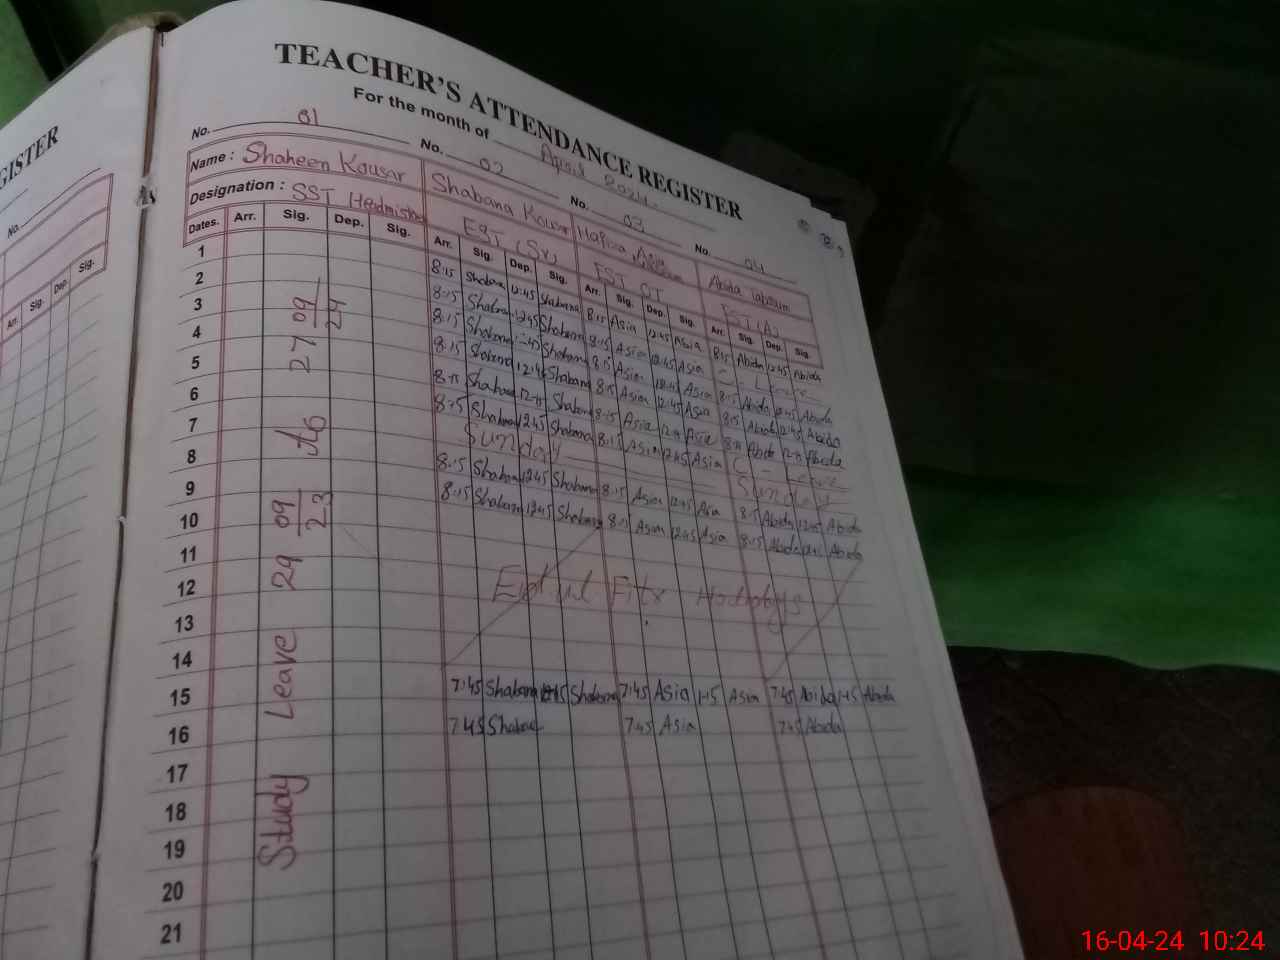 GISTER
No.
Arr. Sig. Dep. Sig.
TEACHER'S ATTENDANCE REGISTER
For the month of April 2024
No. 01 No. 02 No. 03 No. 04
Name : Shaheen Kousar Shabana Kousar Hafiza Asia Abida Tabsum
Designation : SST Headmist EST (Sr) EST OT EST (A)
Dates. Arr. Sig. Dep. Sig. Arr. Sig. Dep. Sig. Arr. Sig. Dep. Sig. Arr. Sig. Dep. Sig.
Study Leave 29 09/23 27 09/24
1 8:15 Shabana 12:45 Shabana 8:15 Asia 12:45 Asia 8:15 Abida 12:45 Abida
2 8:15 Shabana 12:45 Shabana 8:15 Asia 12:45 Asia C - Leave
3 8:15 Shabana Shabana 8:15 Asia 12:45 Asia 8:15 Abida 12:45 Abida
4 8:15 Shabana 12:45 Shabana 8:15 Asia 12:45 Asia 8:15 Abida 12:45 Abida
5 Shabana Shabana 8:15 Asia Asia Abida Abida
6 8:15 Shabana 12:45 Shabana 8:15 Asia 12:45 Asia C - Leave
7 Sunday Sunday
8 8:15 Shabana 12:45 Shabana 8:15 Asia 12:45 Asia 8:15 Abida 12:45 Abida
9 8:15 Shabana 12:45 Shabana Asia 12:45 Asia 8:15 Abida Abida
10
11
12 Eid ul Fitr
13
14
15 7:45 Shabana Shabana 7:45 Asia 1:15 Asia 7:45 Abida 1:15 Abida
16 7:45 7:45 Asia 7:45 Abida
17
18
19
20
21
16-04-24 10:24